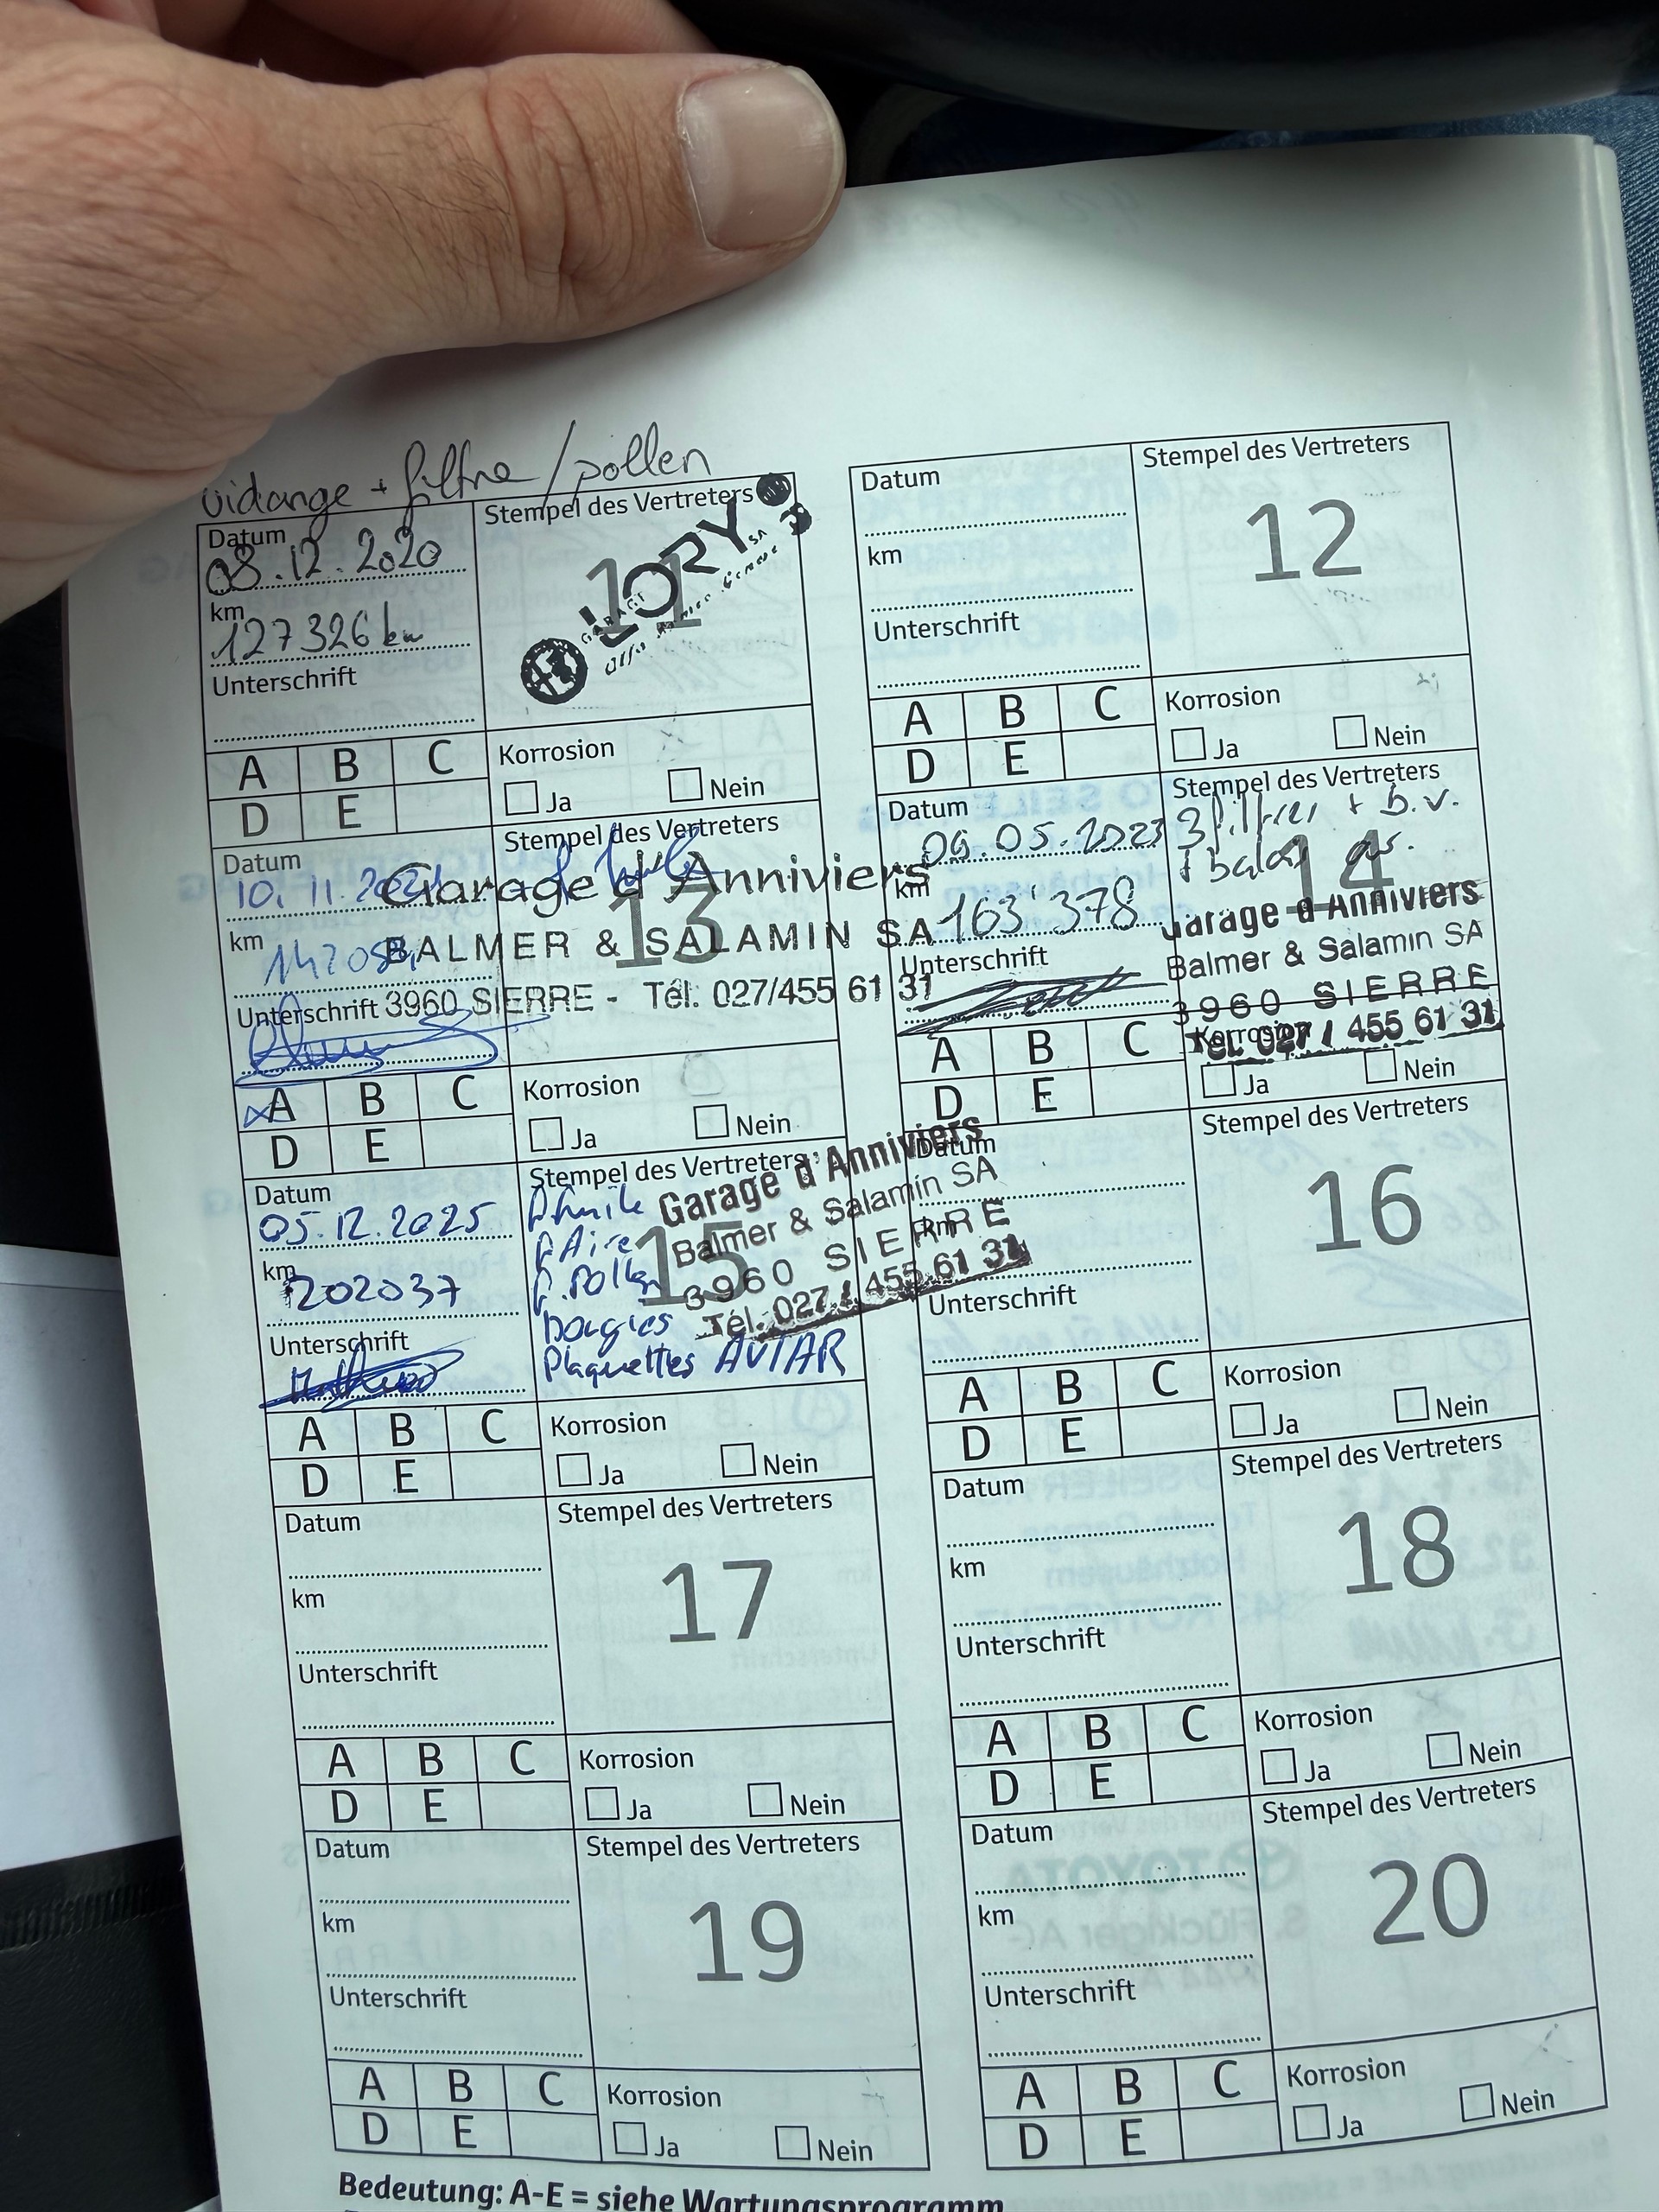 vidange + filtre / pollen
Datum
08.12.2020
km
127326 km
Unterschrift
Stempel des Vertreters
11
GARAGE
LORY SA
A B C
D E
Korrosion
Ja Nein
Datum
km
Unterschrift
Stempel des Vertreters
12
A B C
D E
Korrosion
Ja Nein
Datum
10.11.2021
km
Unterschrift
Stempel des Vertreters
13
Garage d'Anniviers
BALMER & SALAMIN SA
3960 SIERRE - Tél. 027/455 61 31
A B C
D E
Korrosion
Ja Nein
Datum
09.05.2023
km
163'378
Unterschrift
Stempel des Vertreters
3 filtres + b.v.
+ balais
14
Garage d'Anniviers
Balmer & Salamin SA
3960 SIERRE
Tél. 027 / 455 61 31
A B C
D E
Korrosion
Ja Nein
Datum
05.12.2025
km
202037
Unterschrift
Stempel des Vertreters
15
F. Pollen
Bougies
Plaquettes AV+AR
Garage d'Anniviers
Balmer & Salamin SA
3960 SIERRE
Tél. 027 / 455 61 31
A B C
D E
Korrosion
Ja Nein
Datum
km
Unterschrift
Stempel des Vertreters
16
A B C
D E
Korrosion
Ja Nein
Datum
km
Unterschrift
Stempel des Vertreters
17
A B C
D E
Korrosion
Ja Nein
Datum
km
Unterschrift
Stempel des Vertreters
18
A B C
D E
Korrosion
Ja Nein
Datum
km
Unterschrift
Stempel des Vertreters
19
A B C
D E
Korrosion
Ja Nein
Datum
km
Unterschrift
Stempel des Vertreters
20
A B C
D E
Korrosion
Ja Nein
Bedeutung: A-E = siehe Wartungsprogramm